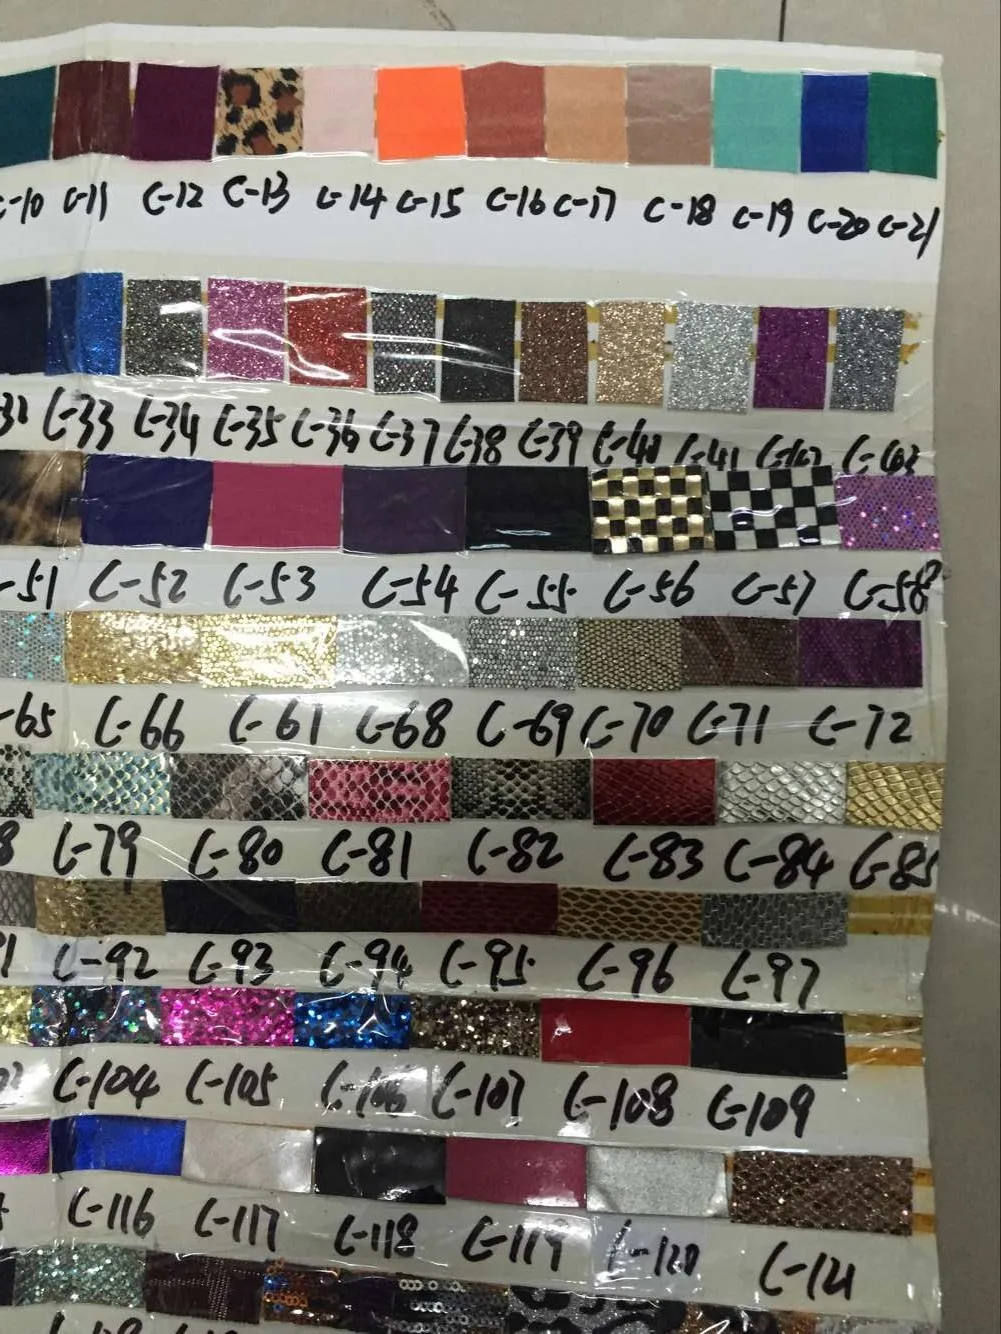 C-10 C-11 C-12 C-13 C-14 C-15 C-16 C-17 C-18 C-19 C-20 C-21
32 C-33 C-34 C-35 C-36 C-37 C-38 C-39 C-40 C-41 C-42 C-43
-51 C-52 C-53 C-54 C-55 C-56 C-57 C-58
-65 C-66 C-67 C-68 C-69 C-70 C-71 C-72
8 C-79 C-80 C-81 C-82 C-83 C-84 C-85
91 C-92 C-93 C-94 C-95 C-96 C-97
03 C-104 C-105 C-106 C-107 C-108 C-109
C-116 C-117 C-118 C-119 C-120 C-121